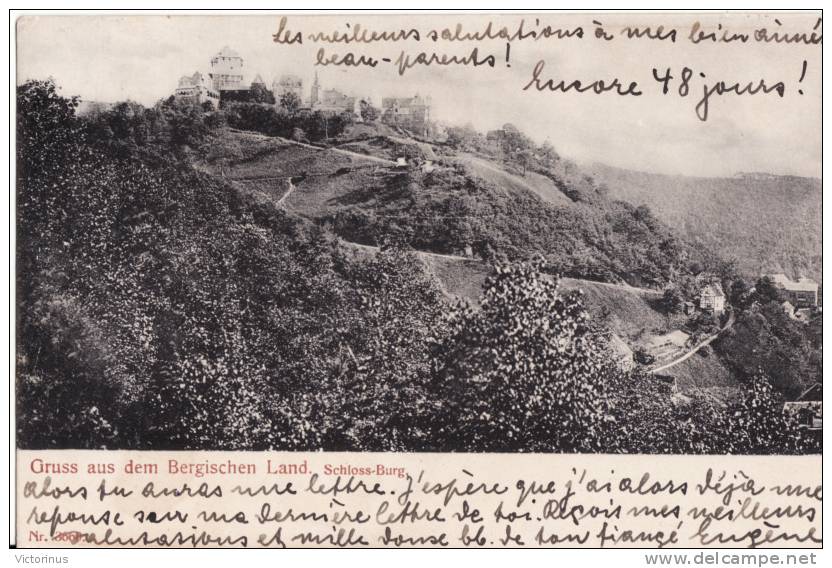 Les meilleurs salutations à mes bien aimés
beau-parents!
Encore 48 jours!
Gruss aus dem Bergischen Land. Schloss-Burg.
alors tu auras une lettre. J'espère que j'ai alors déjà une
réponse sur ma dernière lettre de toi. Reçois mes meilleurs
salutations et mille douse bb. de ton fiançé Eugène
Nr.
Victorinus
delcampe.net